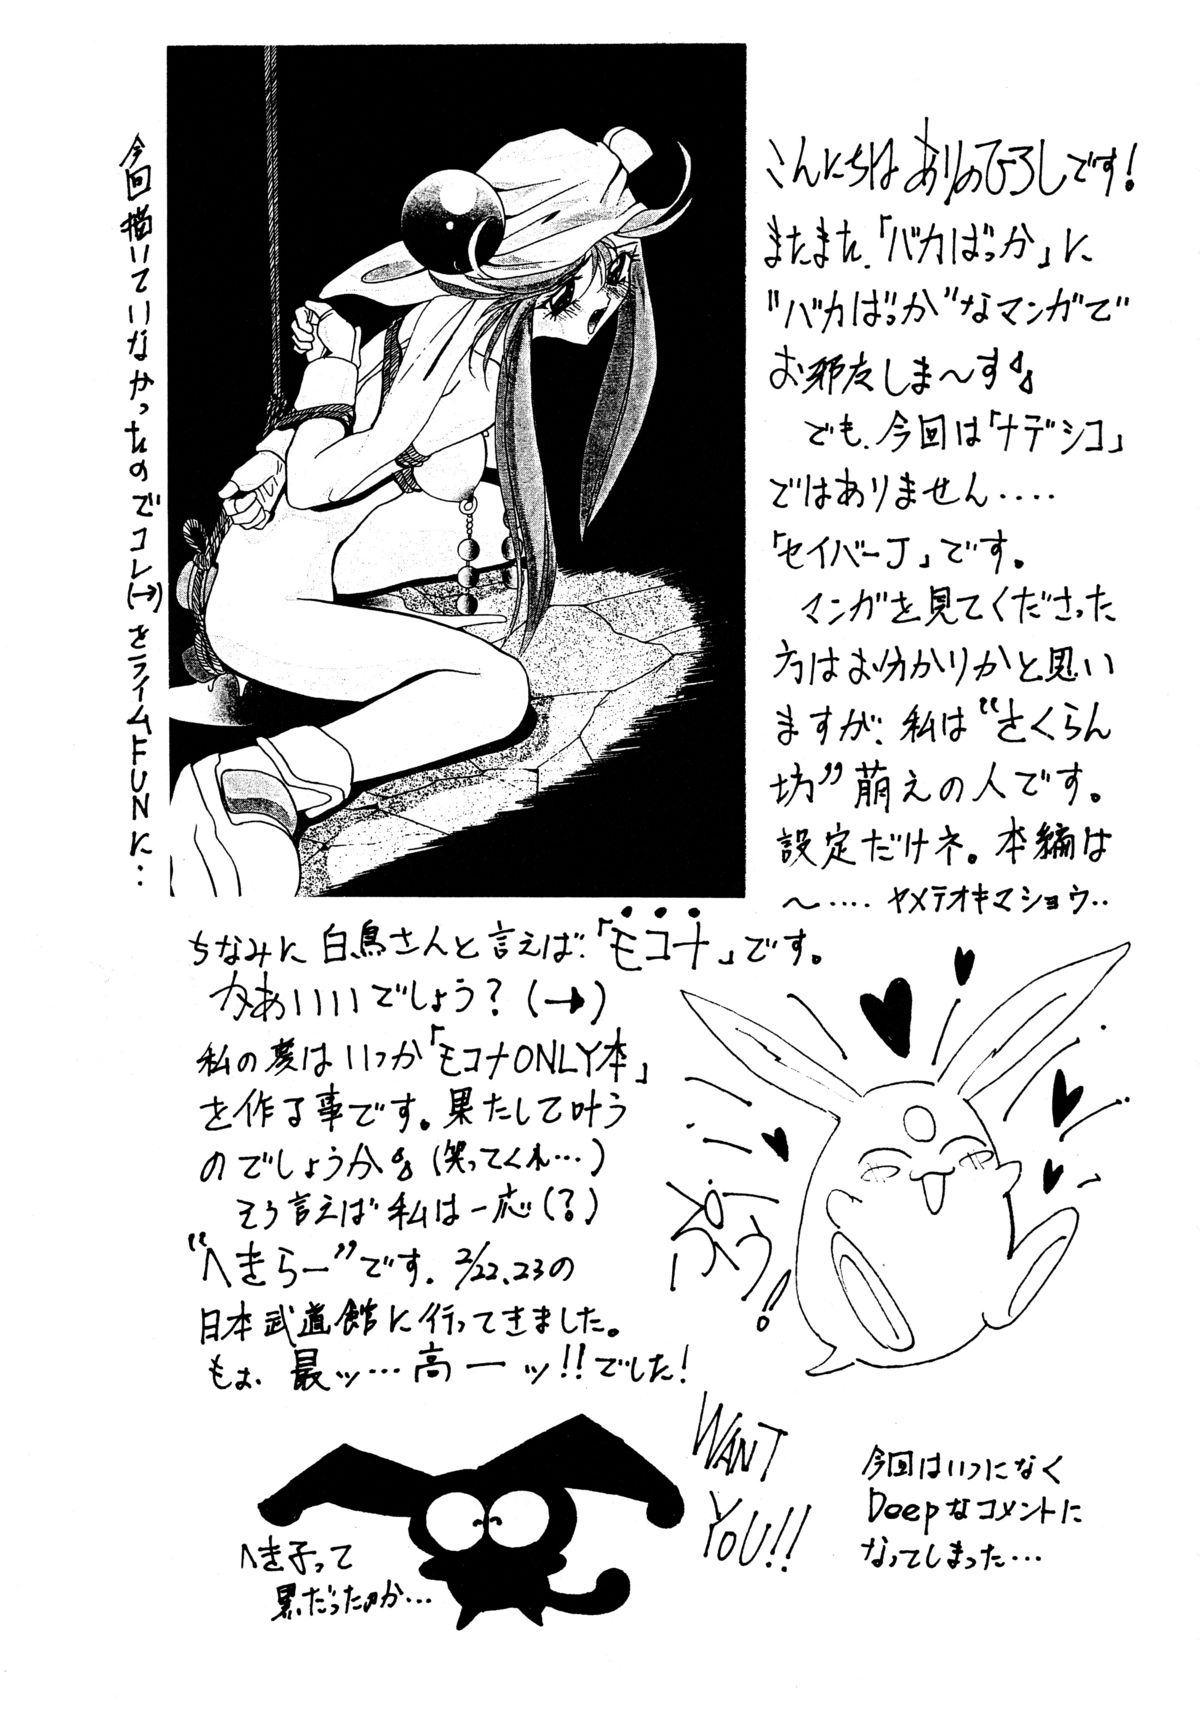 こんにちは ありのひろしです!
またまた、「バカばっか」に
"バカばっか"なマンガで
お邪友しま〜す。
でも、今回は「ナデシコ」
ではありません・・・・
「セイバーJ」です。
マンガを見てくださった
方はお分かりかと思い
ますが、私は"さくらん
坊"萌えの人です。
設定だけネ。本編は
〜・・・・ ヤメテオキマショウ・・
今回描いていなかったのでコレ(→)をライムFUNに・・
ちなみに白鳥さんと言えば、「モコナ」です。
かあいいいでしょう?(→)
私の夢はいつか「モコナONLY本」
を作る事です。果たして叶う
のでしょうか。(笑ってくれ…)
そう言えば私は一応(?)
"へきらー"です。2/22、23の
日本武道館に行ってきました。
もぉ、最ッ…高ーッ!!でした!
ぷぷぅ!
WANT
YOU!!
へき子って
黒だったのか…
今回はいつになく
Deepなコメントに
なってしまった…